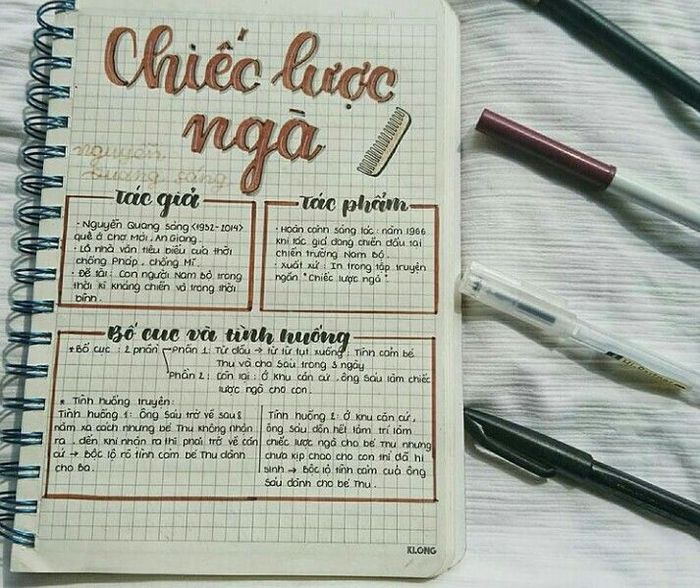 Chiếc lược
ngà
nguyễn
quang sáng
tác giả
- Nguyễn Quang Sáng <1932-2014>
quê ở chợ Mới, An Giang.
- Là nhà văn tiêu biểu của thời
chống Pháp, chống Mĩ.
- Đề tài: Con người Nam Bộ trong
thời kì kháng chiến và trong thời
bình.
tác phẩm
- Hoàn cảnh sáng tác: năm 1966
khi tác giả đang chiến đấu tại
chiến trường Nam Bộ.
- Xuất xứ: In trong tập truyện
ngắn "Chiếc lược ngà".
Bố cục và tình huống
* Bố cục: 2 phần
Phần 1: Từ đầu → từ từ tụt xuống: Tình cảm bé
Thu và cha Sáu trong 3 ngày
Phần 2: Còn lại: Ở khu căn cứ, ông Sáu làm chiếc
lược ngà cho con.
* Tình huống truyện:
Tình huống 1: ông Sáu trở về sau 8
năm xa cách nhưng bé Thu không nhận
ra, đến khi nhận ra thì phải trở về căn
cứ → Bộc lộ rõ tình cảm bé Thu dành
cho ba.
Tình huống 2: Ở khu căn cứ,
ông Sáu dồn hết tâm trí làm
chiếc lược ngà cho bé Thu nhưng
chưa kịp trao cho con thì đã hi
sinh → Bộc lộ tình cảm của ông
Sáu dành cho bé Thu.
KLONG